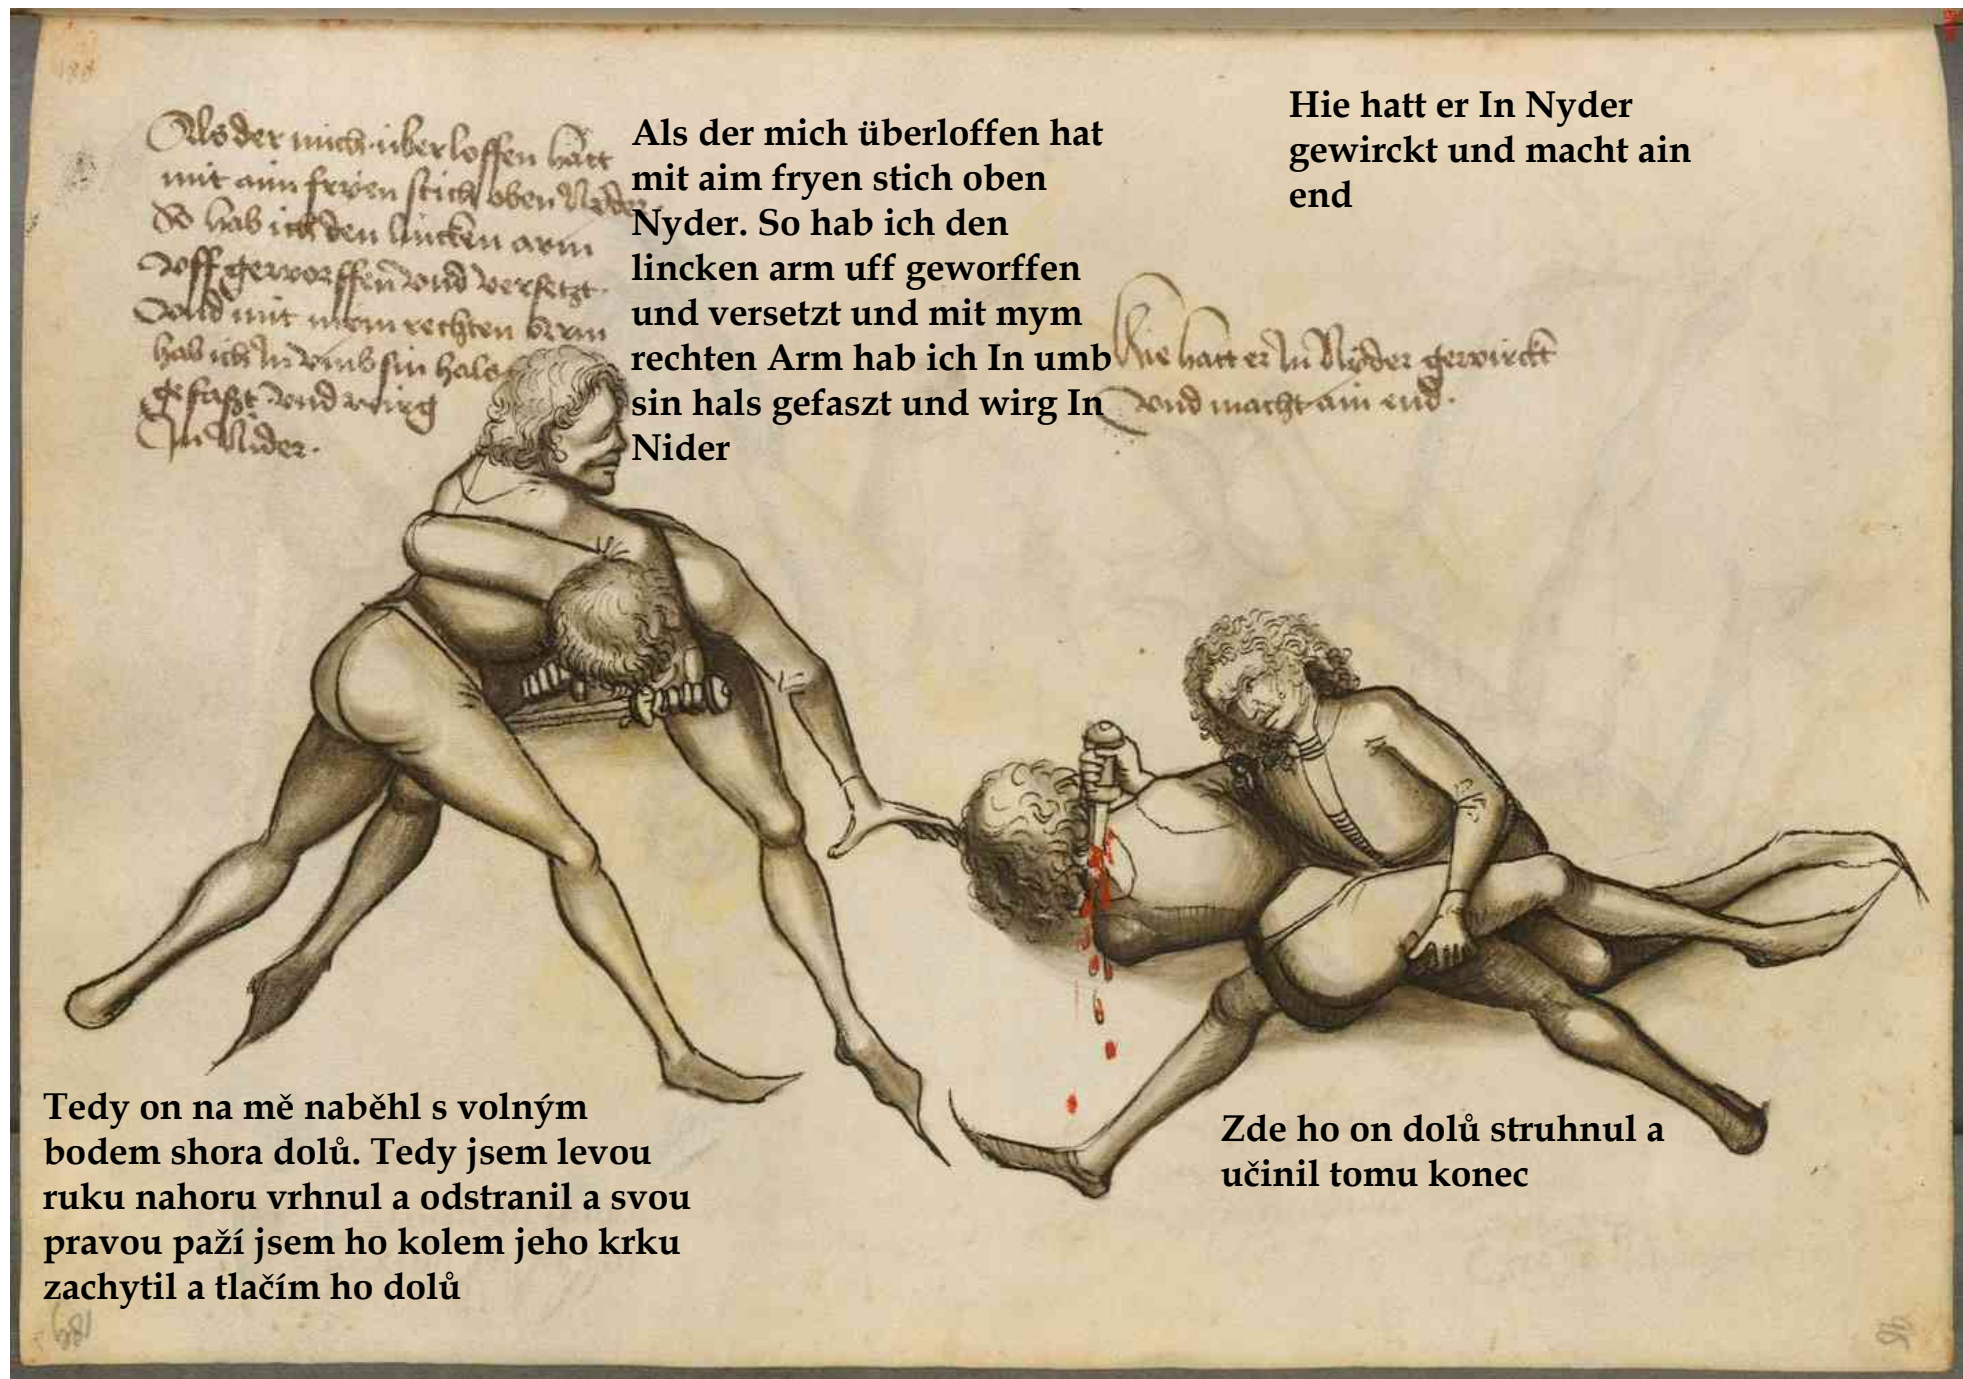 188
Als der mich überloffen hatt
mit aim fryen stich oben Nyder
So hab ich den lincken arm
uff geworffen und versetzt
und mit mym rechten arm
hab ich In umb sin hals
gefaßt und wirg
In Nider.
Als der mich überloffen hat
mit aim fryen stich oben
Nyder. So hab ich den
lincken arm uff geworffen
und versetzt und mit mym
rechten Arm hab ich In umb
sin hals gefaszt und wirg In
Nider
Hie hatt er In Nyder
gewirckt und macht ain
end
Hie hatt er In Nyder gewirckt
und macht ain end.
Tedy on na mě naběhl s volným
bodem shora dolů. Tedy jsem levou
ruku nahoru vrhnul a odstranil a svou
pravou paží jsem ho kolem jeho krku
zachytil a tlačím ho dolů
Zde ho on dolů struhnul a
učinil tomu konec